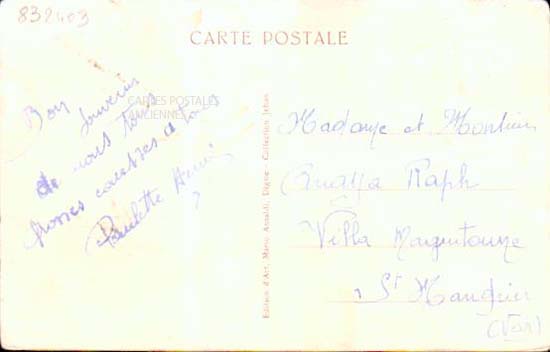 832403
CARTE POSTALE
CARTES POSTALES
ANCIENNES
Bon Souvenir
de nous tous
grosses caresses a tous
Paulette Henri
Edition d'Art, Mario Ansaldi, Digne - Collection Jehan
Madame et Monsieur
Raph
Villa
St Mandrier
(Var)